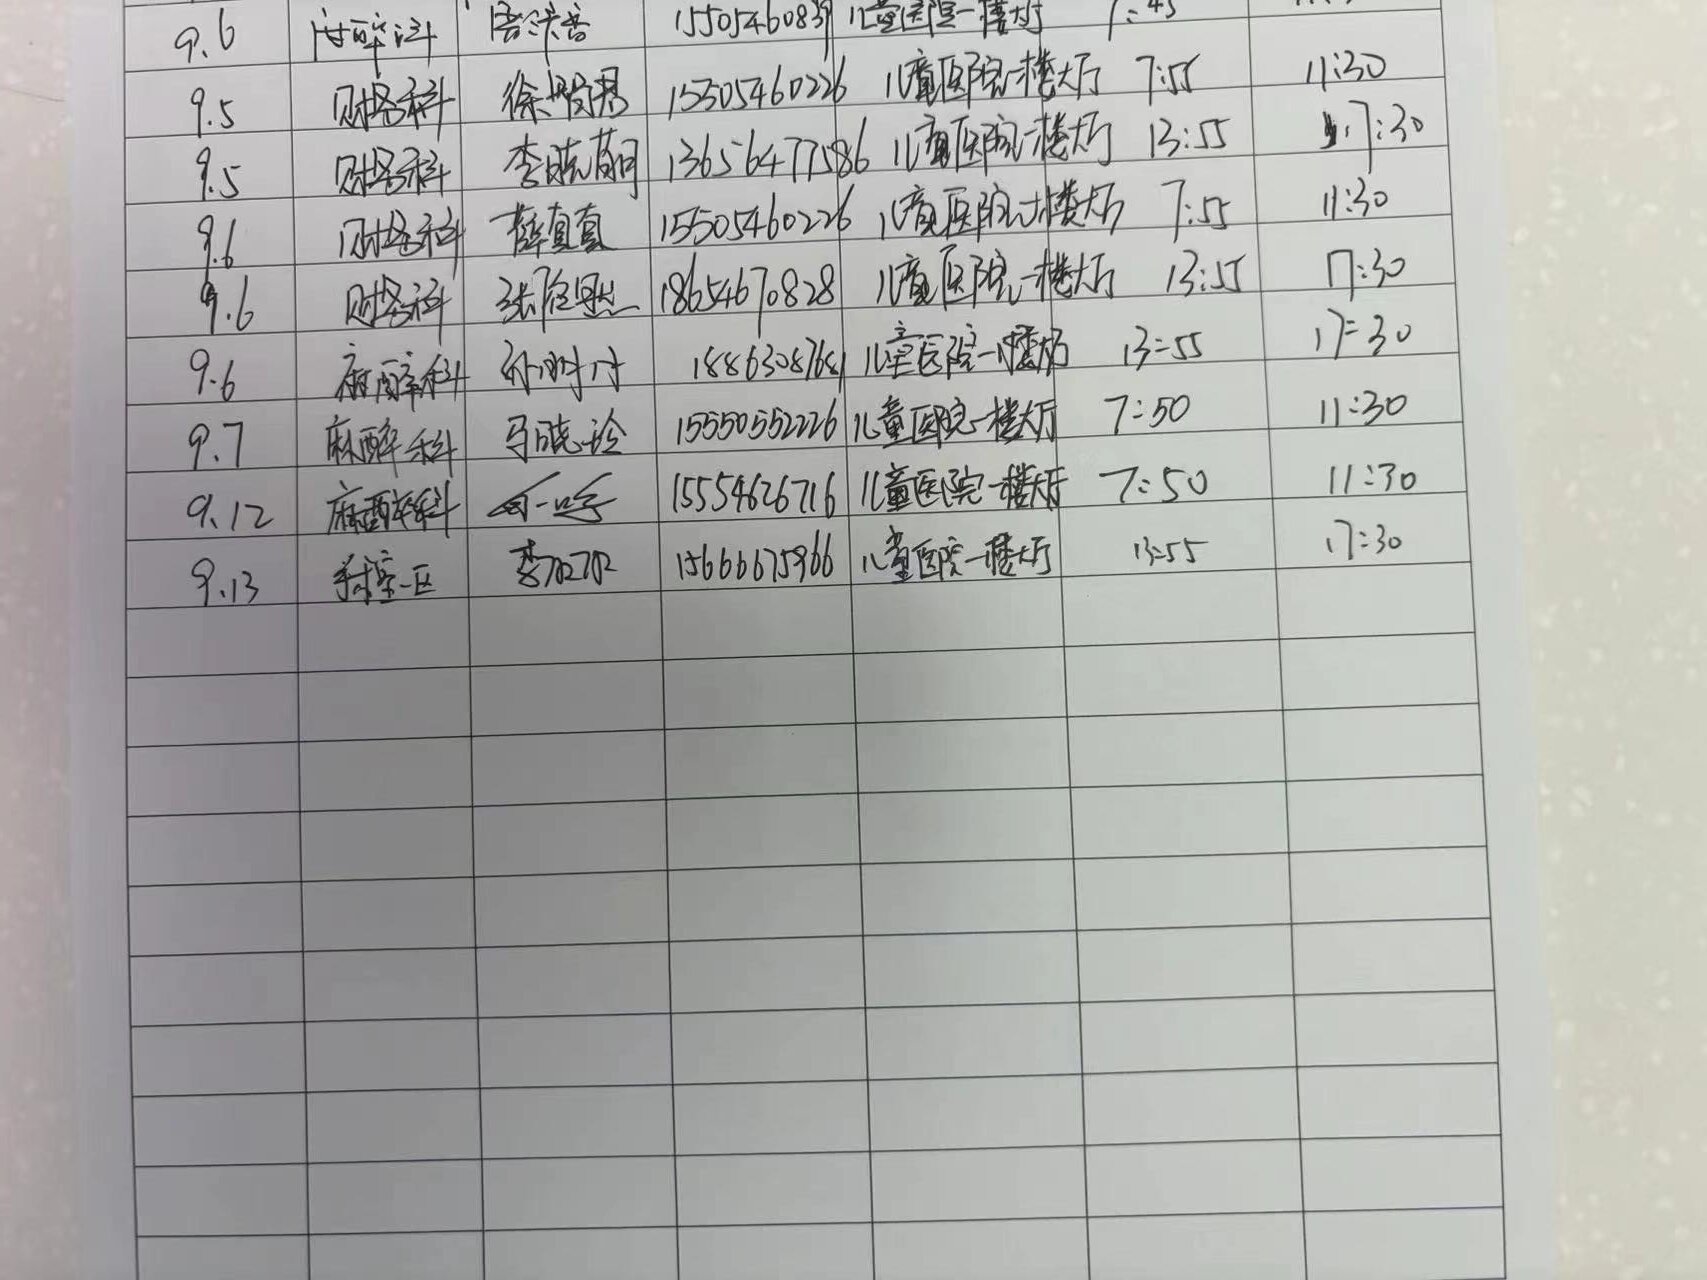 9.6 麻醉科 15505460839 儿童医院一楼大厅 7:45
9.5 财务科 徐 君 15505460226 儿童医院一楼大厅 7:55 11:30
9.5 财务科 李晓菊 13656477586 儿童医院一楼大厅 13:55 17:30
9.6 财务科 薛真真 15505460226 儿童医院一楼大厅 7:55 11:30
9.6 财务科 张 18654670828 儿童医院一楼大厅 13:55 17:30
9.6 麻醉科 孙 18863087681 儿童医院一楼大厅 13:55 17:30
9.7 麻醉科 马晓玲 15550552226 儿童医院一楼大厅 7:50 11:30
9.12 麻醉科 15554626716 儿童医院一楼大厅 7:50 11:30
9.13 手术室一区 李 15666675966 儿童医院一楼大厅 13:55 17:30